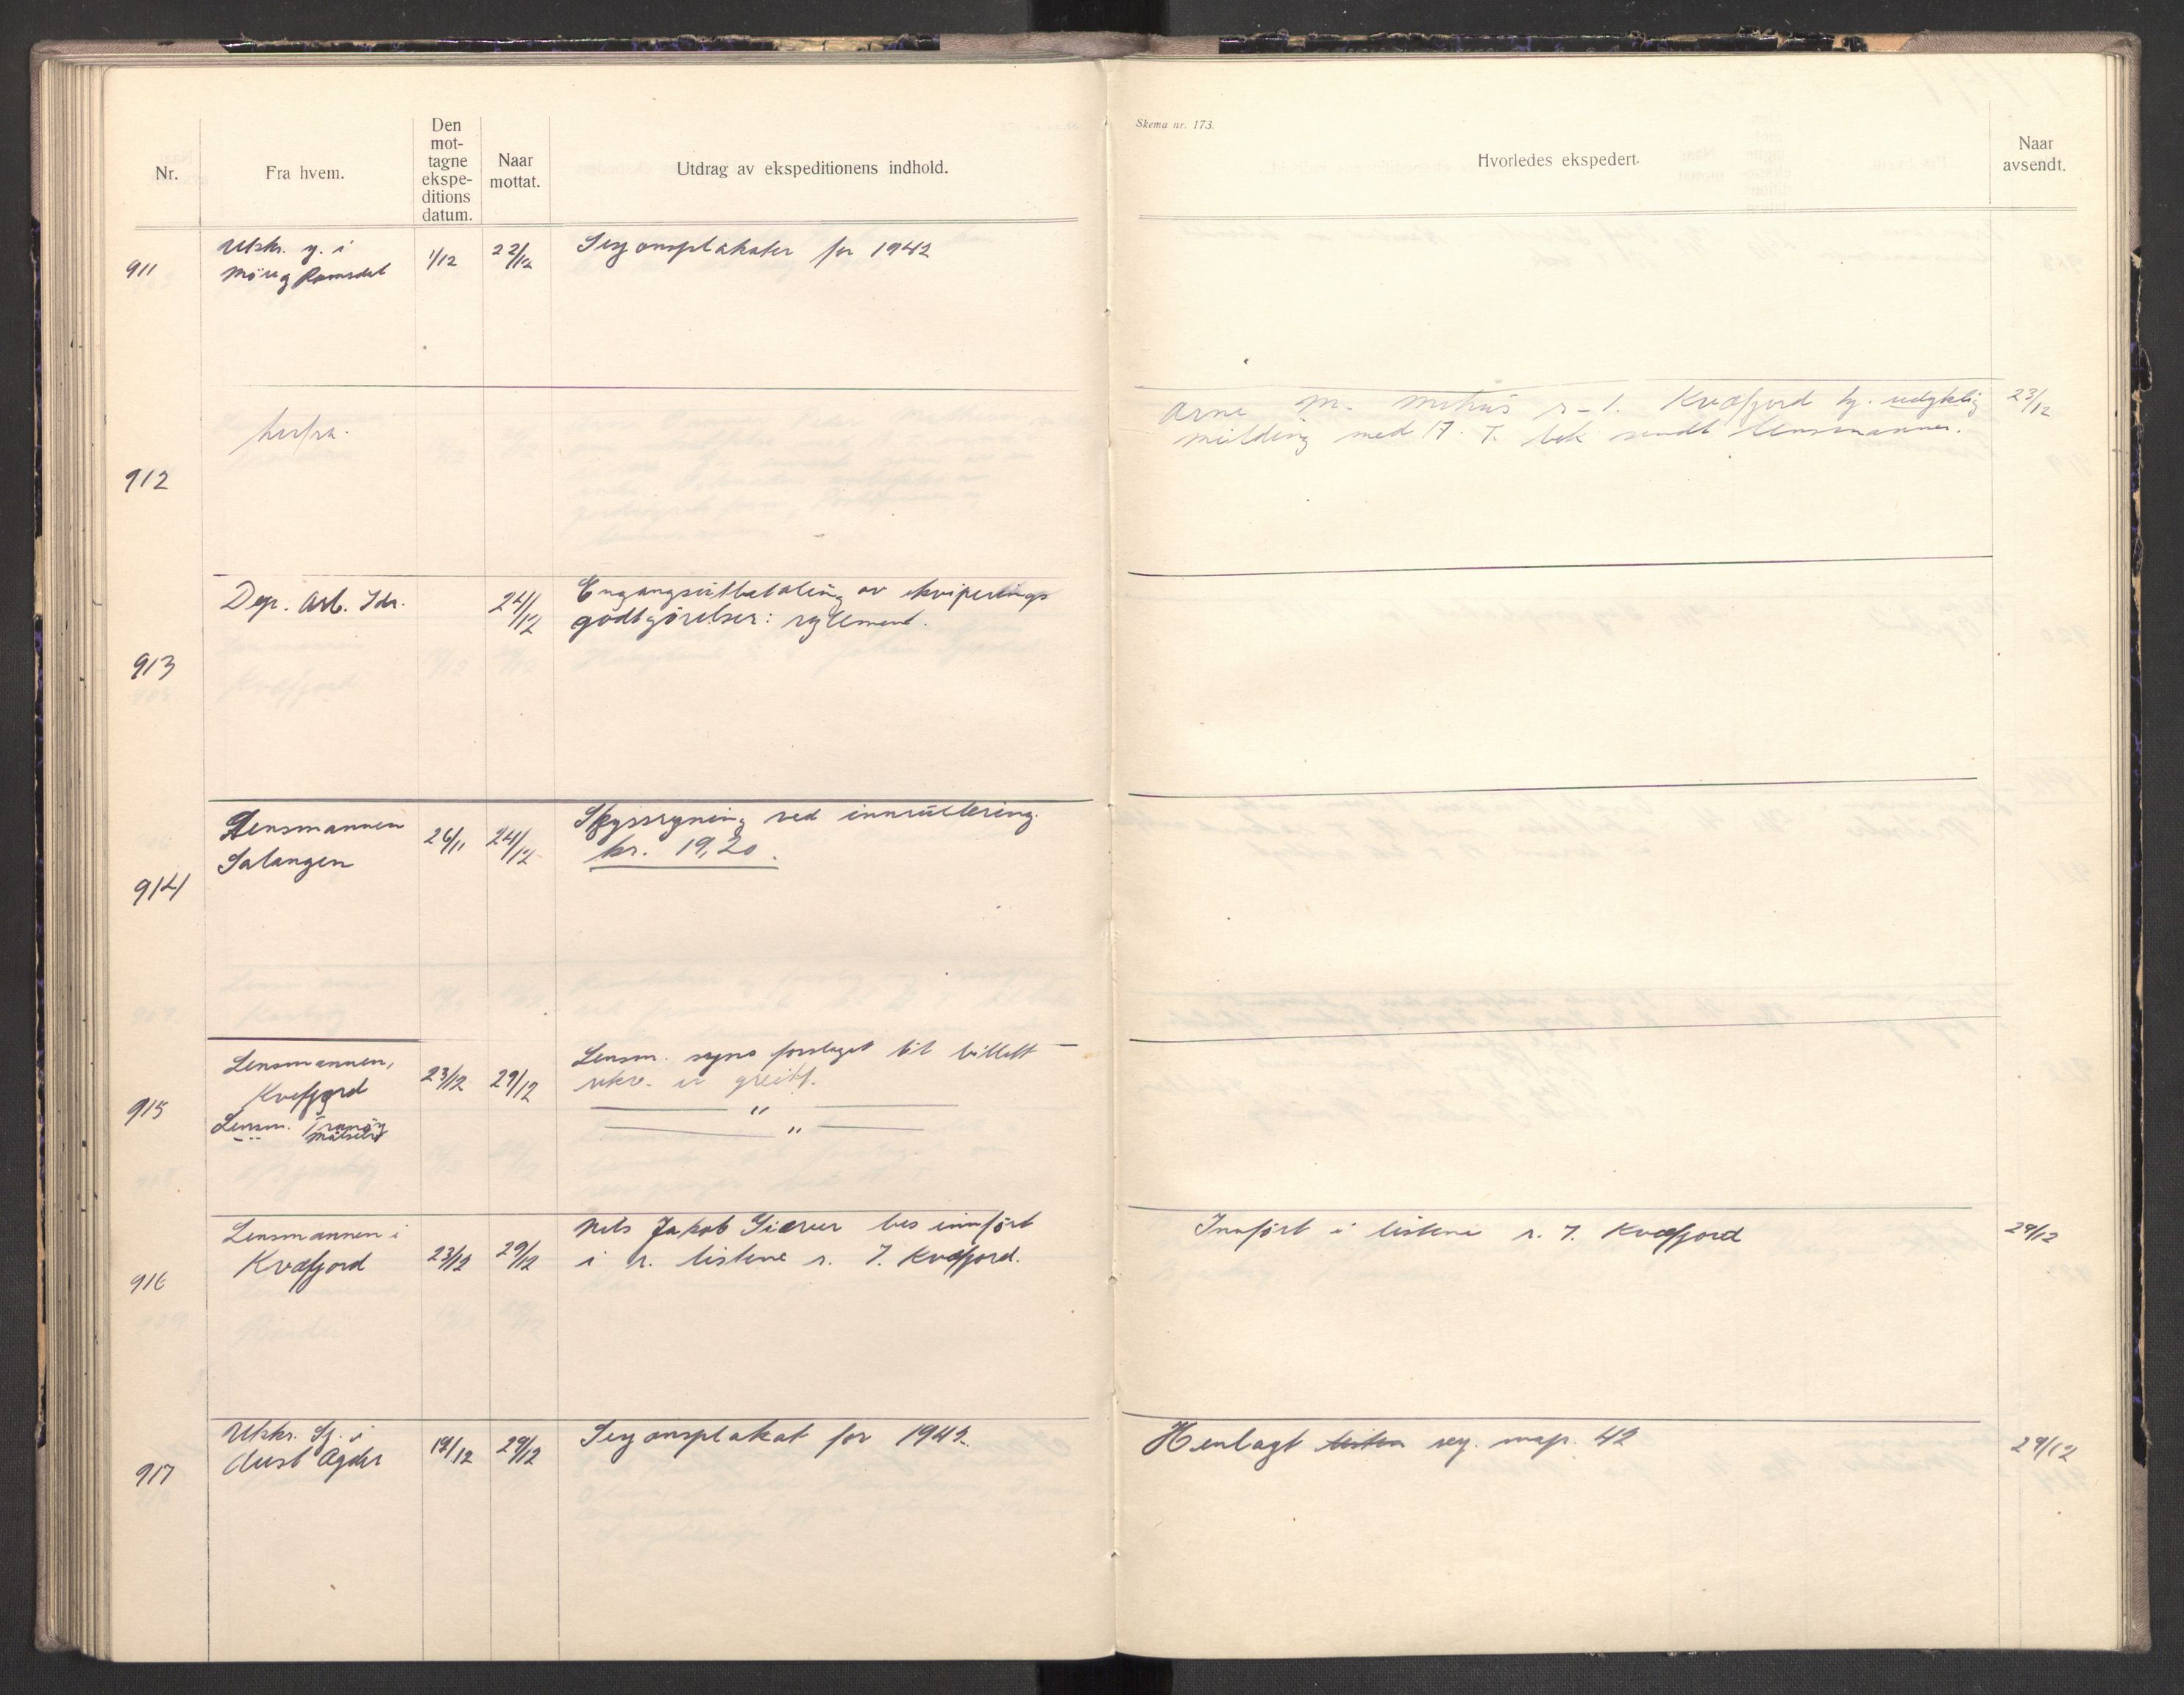 Skema nr. 173.
Nr.
Fra hvem.
Den
mot-
tagne
ekspe-
ditions
datum.
Naar
mottat.
Utdrag av ekspeditionens indhold.
Hvorledes ekspedert.
Naar
avsendt.
911
Utskr. sj. i
Möre og Romsdal
1/12
22/12
Sesjonsplakater for 1942
912
herfra.
Arne M. r-l. Kvæfjord
melding med 17. T. bek sendt lensmannen.
23/12
913
Dep. Arb. Idr.
24/12
Engangsutbetaling av ekviperings
godtgjörelser: reglement.
914
Lensmannen
Salangen
26/11
24/12
Skyssregning ved innrullering.
kr. 19,20.
915
Lensmannen,
Kvæfjord
Lensm. Tranöy
— " — Målselv
23/12
29/12
Lensm. synes forslaget til billett-
rekv. er greitt.
— " —
— " —
916
Lensmannen i
Kvæfjord
23/12
29/12
Nils Jakob Giæver bes innfört
i r. listene r. 7. Kvæfjord.
Innfört i listene r. 7. Kvæfjord
29/12
917
Utskr. Sj. i
Aust Agder
19/12
29/12
Sesjonsplakat for 1942.
Henlagt sesj. map. 42
29/12